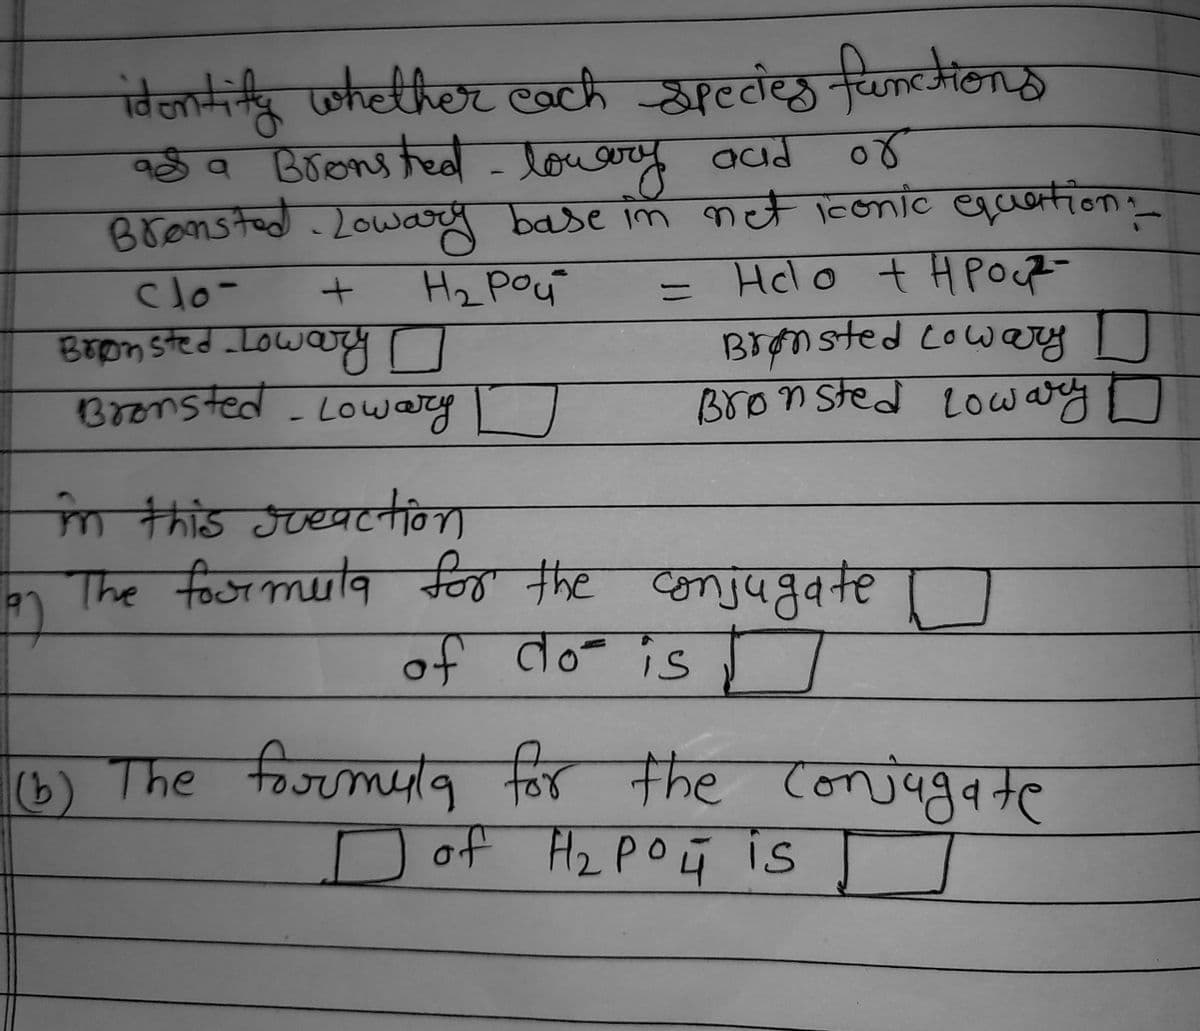 identify whether each species functions
as a Bronsted - lowary acid or
Bronsted - Lowary base in net iconic equation :-
Clo- + H2 PO4- = Hclo + HPO42-
Bronsted - Lowary □ Brønsted Lowary □
Bronsted - Lowary □ Bronsted Lowary □
in this reaction
a) The formula for the conjugate □
of clo- is □
(b) The formula for the conjugate
□ of H2 PO4- is □